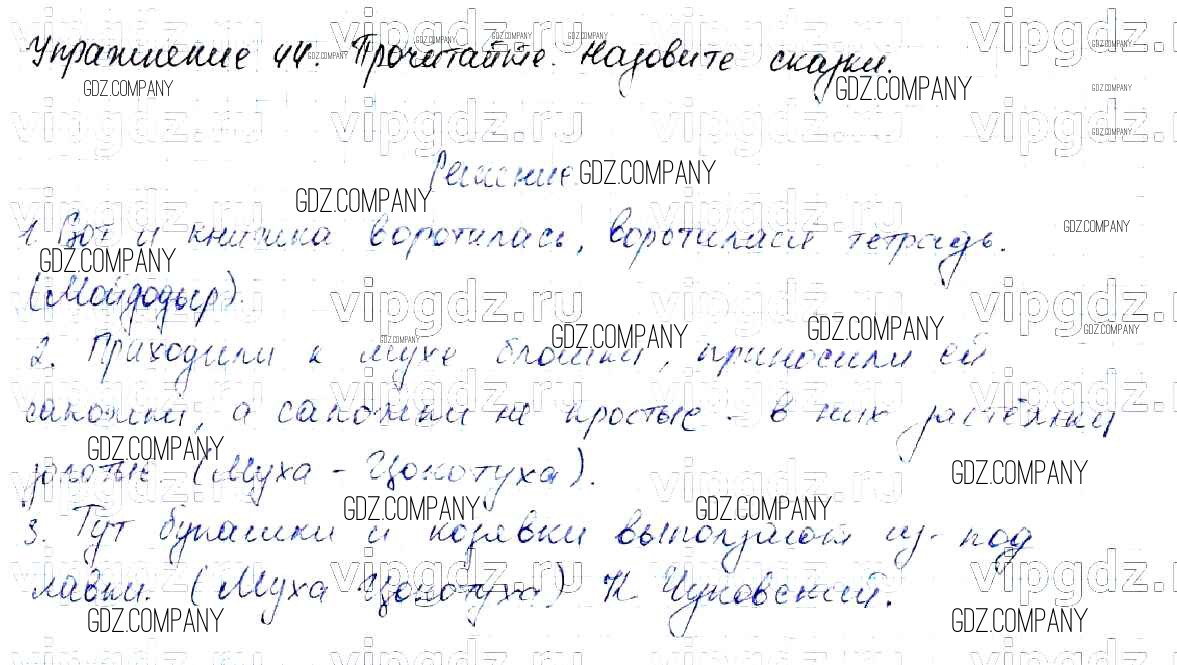 Упражнение 44. Прочитайте. Назовите сказки.
Решение.
1. Вот и книжка воротилась, воротилася тетрадь.
(Мойдодыр).
2. Приходили к мухе блошки, приносили ей
сапожки, а сапожки не простые - в них застёжки
золотые. (Муха - Цокотуха).
3. Тут букашки и козявки выползают из-под
лавки. (Муха Цокотуха) К Чуковский.
GDZ.COMPANY
vipgdz.ru